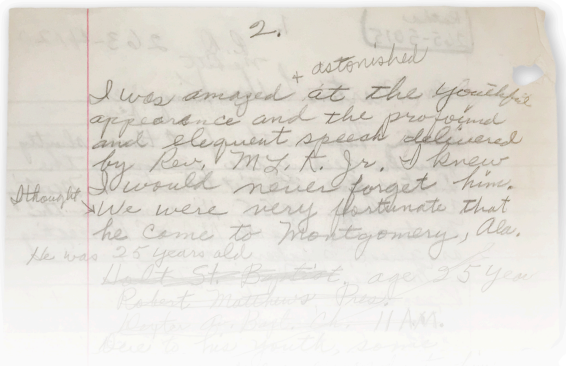 2.
+ astonished
I was amazed at the youthful
appearance and the profound
and elequent speech delivered
by Rev. M L. K. Jr. I knew
I would never forget him.
I thought
We were very fortunate that
he came to Montgomery, Ala.
He was 25 years old
Holt St. Baptist, age 25 year
Robert Matthews Pres.
11 A.M.
Due to his youth, some